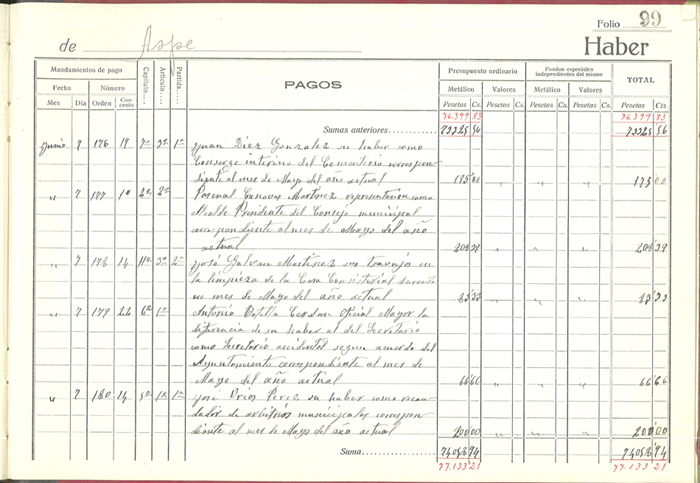 Folio 99
de Aspe Haber
Mandamientos de pago
Fecha Número
Mes Día Orden Con-cepto
Capítulo....
Artículo....
Partida....
PAGOS
Presupuesto ordinario
Metálico Valores
Pesetas Cs. Pesetas Cs.
Fondos especiales
independientes del mismo
Metálico Valores
Pesetas Cs. Pesetas Cs.
TOTAL
Pesetas Cts
76.399 83 76.399 83
Sumas anteriores 73325 56 73325 56
Junio 7 176 19 7º 3º 1º Juan Díez Gonzalez su haber como
Conserge interino del Cementerio correspon-
diente al mes de Mayo del año actual 175 00 " " " 175 00
" 7 177 1º 2º 2º Pascual Canovas Martinez representacion como
Alcalde Presidente del Consejo municipal
correspondiente al mes de Mayo del año
actual 208 39 " " " 208 39
" 7 178 14 11º 3º 2º José Galvan Martínez sus trabajos en
la limpieza de la Casa Consistorial durante
el mes de Mayo del año actual 83 33 " " " 83 33
" 7 179 22 6º 1º Antonio Botella Cerdan Oficial Mayor la
diferencia de su haber al del Secretario
como Secretario accidental segun acuerdo del
Ayuntamiento correspondiente al mes de
Mayo del año actual 66 66 " " " 66 66
" 7 180 14 5º 1º 1º José Prios Perez su haber como recau
dador de arbitrios municipales correspon
diente al mes de Mayo del año actual 200 00 " " " 200 00
Suma 74058 94 74058 94
77.133 21 77.133 21